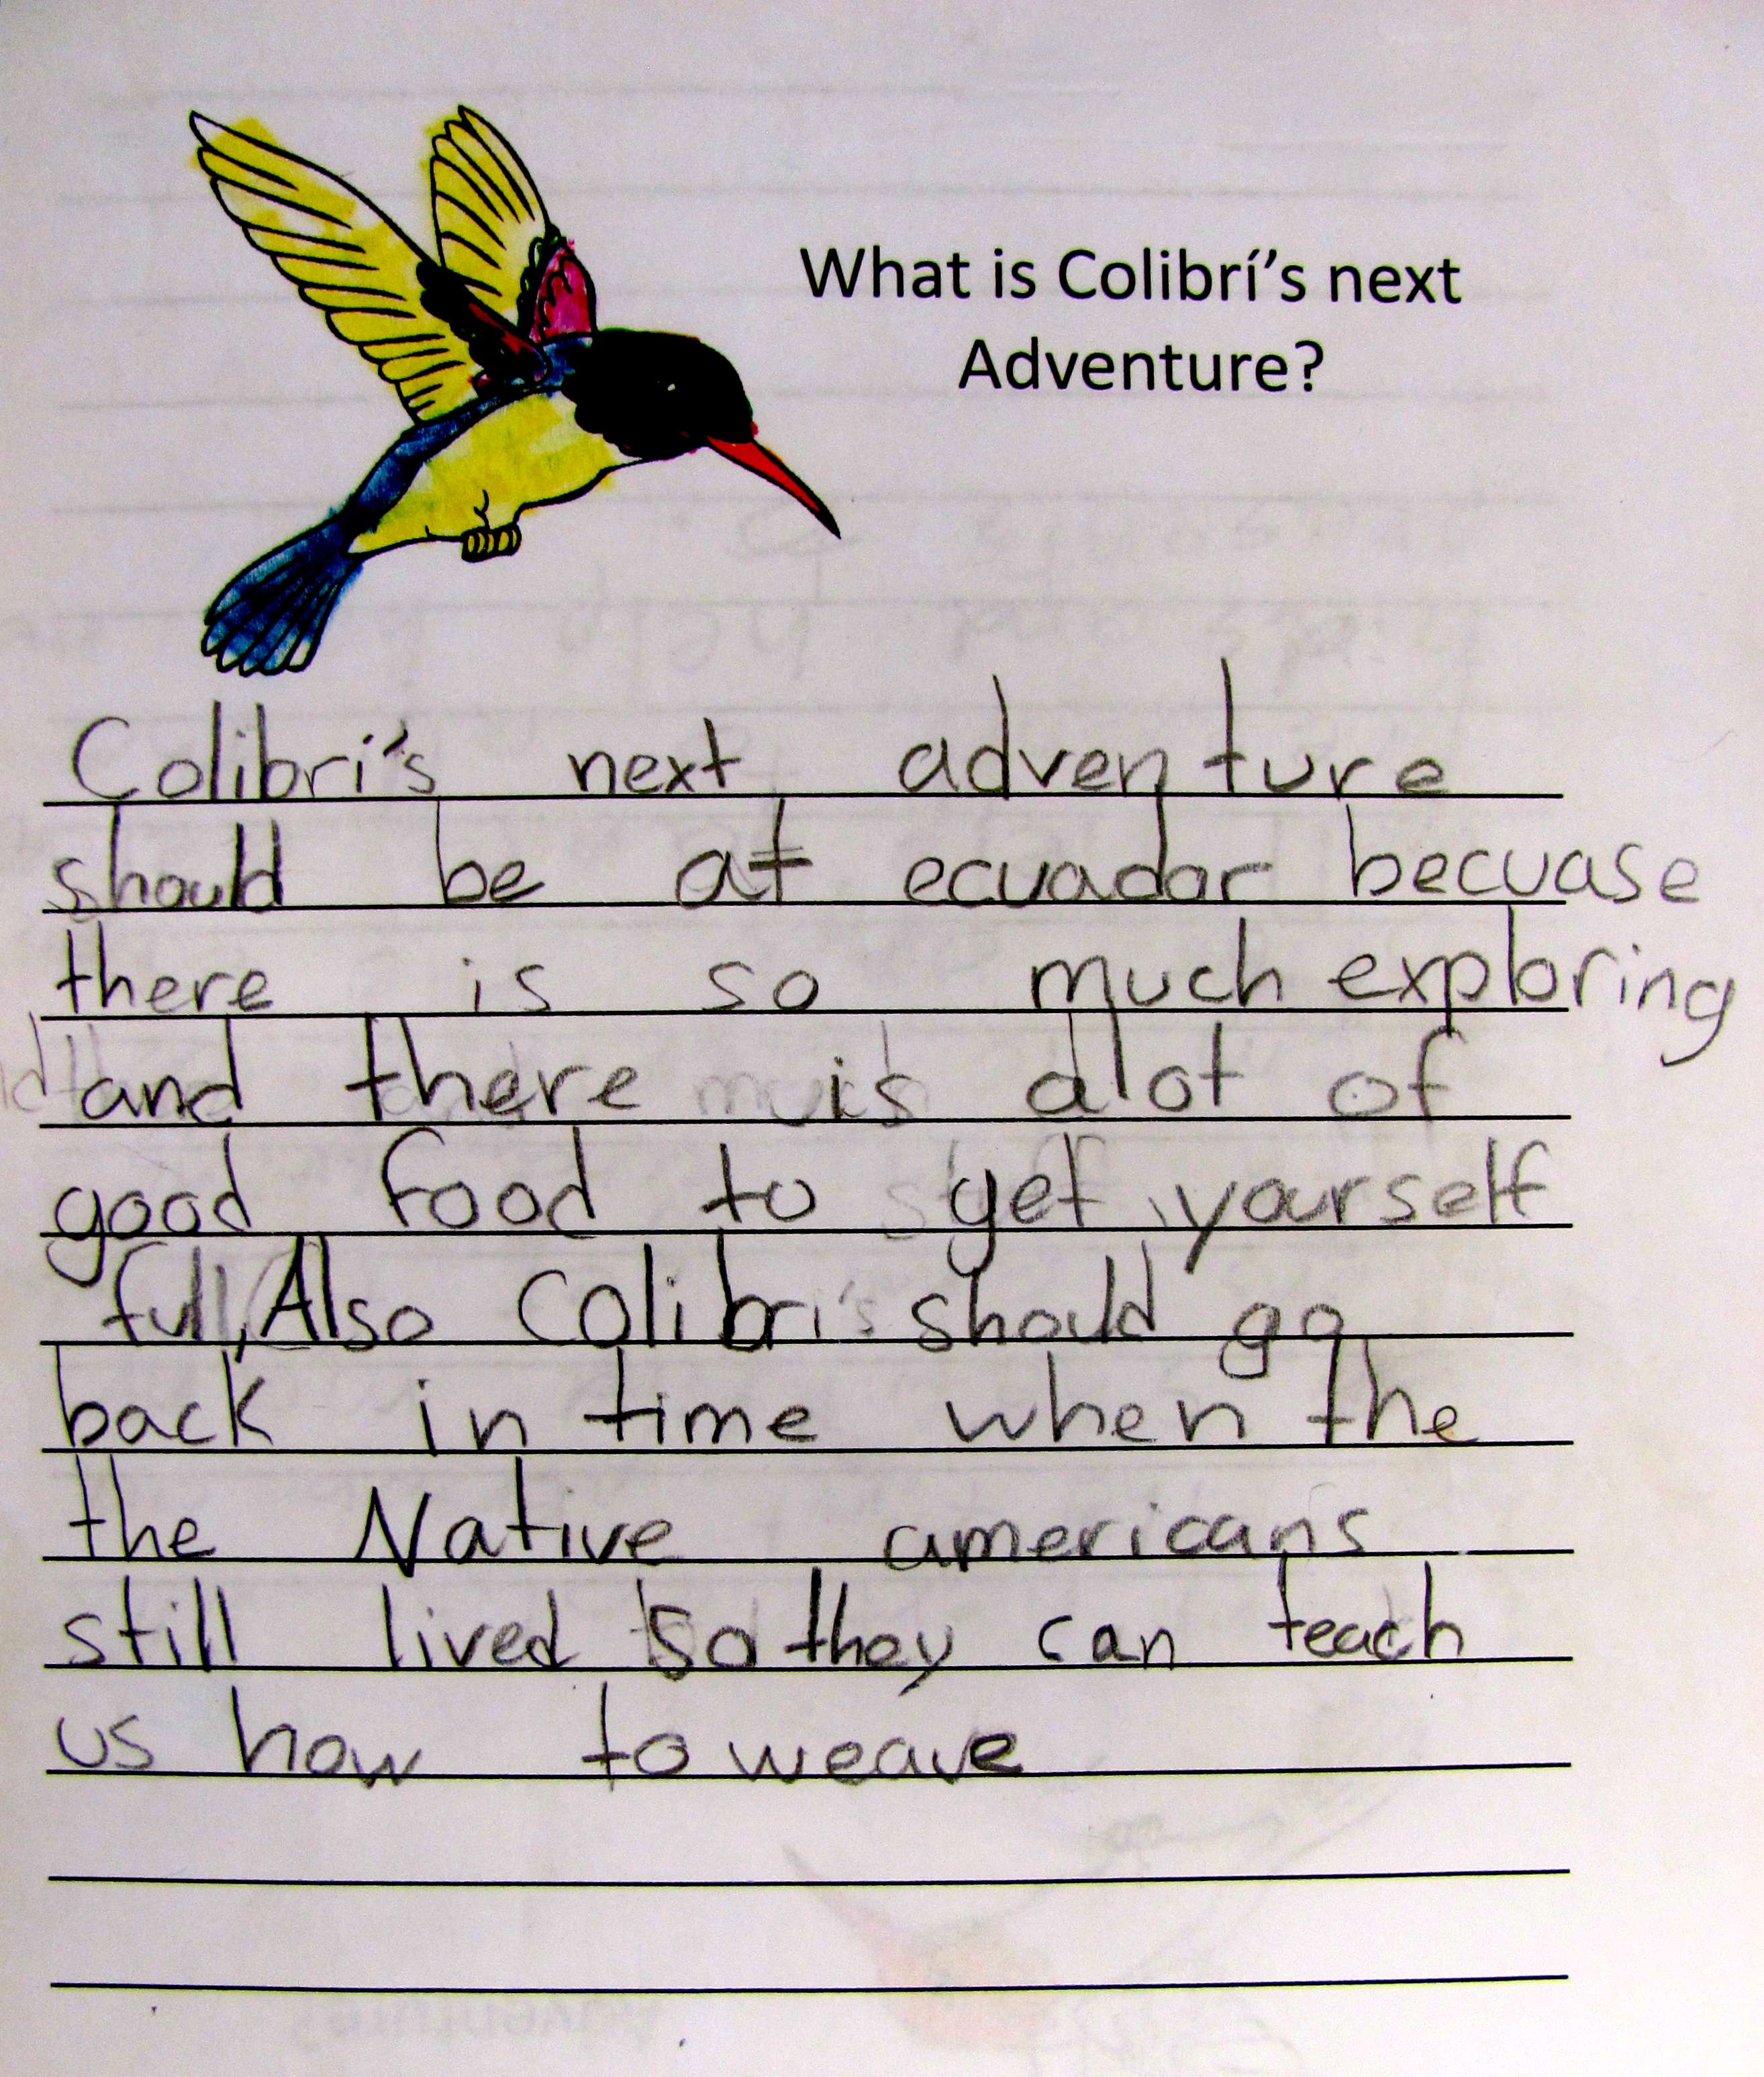 What is Colibrí's next
Adventure?
Colibri's next adventure
should be at ecuador becuase
there is so much exploring
and there is alot of
good food to get yourself
full, Also Colibri's should go
back in time when the
the Native americans
still lived so they can teach
us how to weave